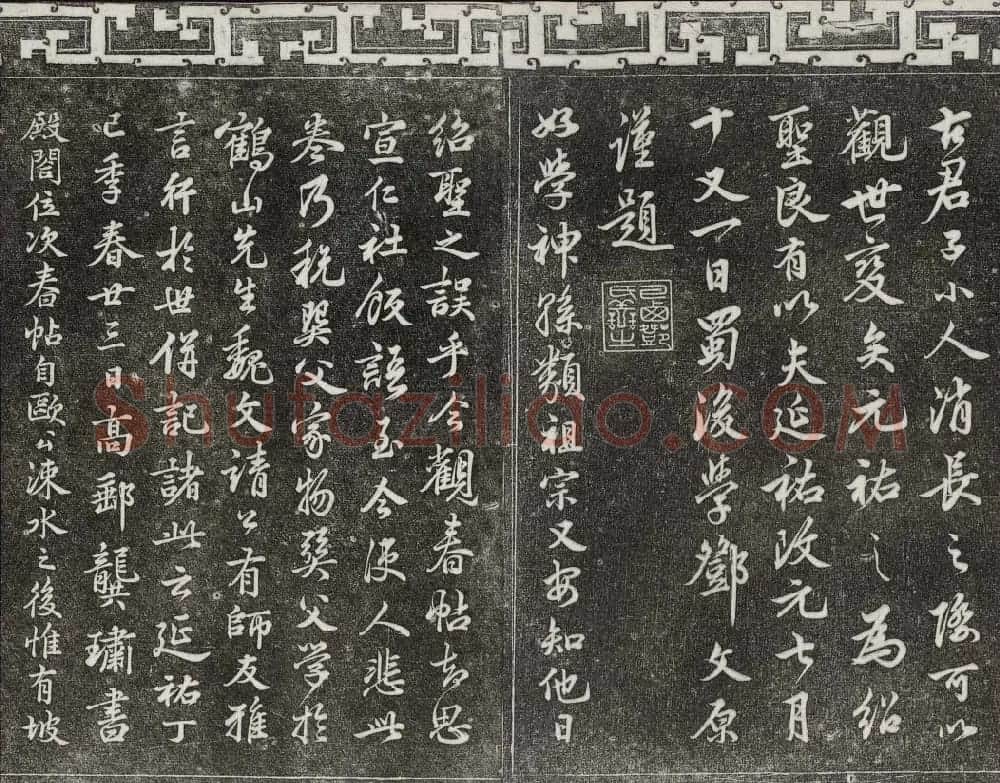 古君子小人消長之際可以
觀世變矣元祐之為紹
聖良有以夫延祐改元七月
十又一日蜀後學鄧文原
謹題
好學神孫類祖宗又安知他日
紹聖之誤乎今觀春帖知思
宣仁社飯語至今使人悲此
卷乃税巽父家物巽父學於
鶴山先生魏文靖公有師友雅
言行於世併記諸此云延祐丁
巳季春廿三日高郵龔璛書
殿閣位次春帖自歐公涑水之後惟有坡
Shufaziliao.COM